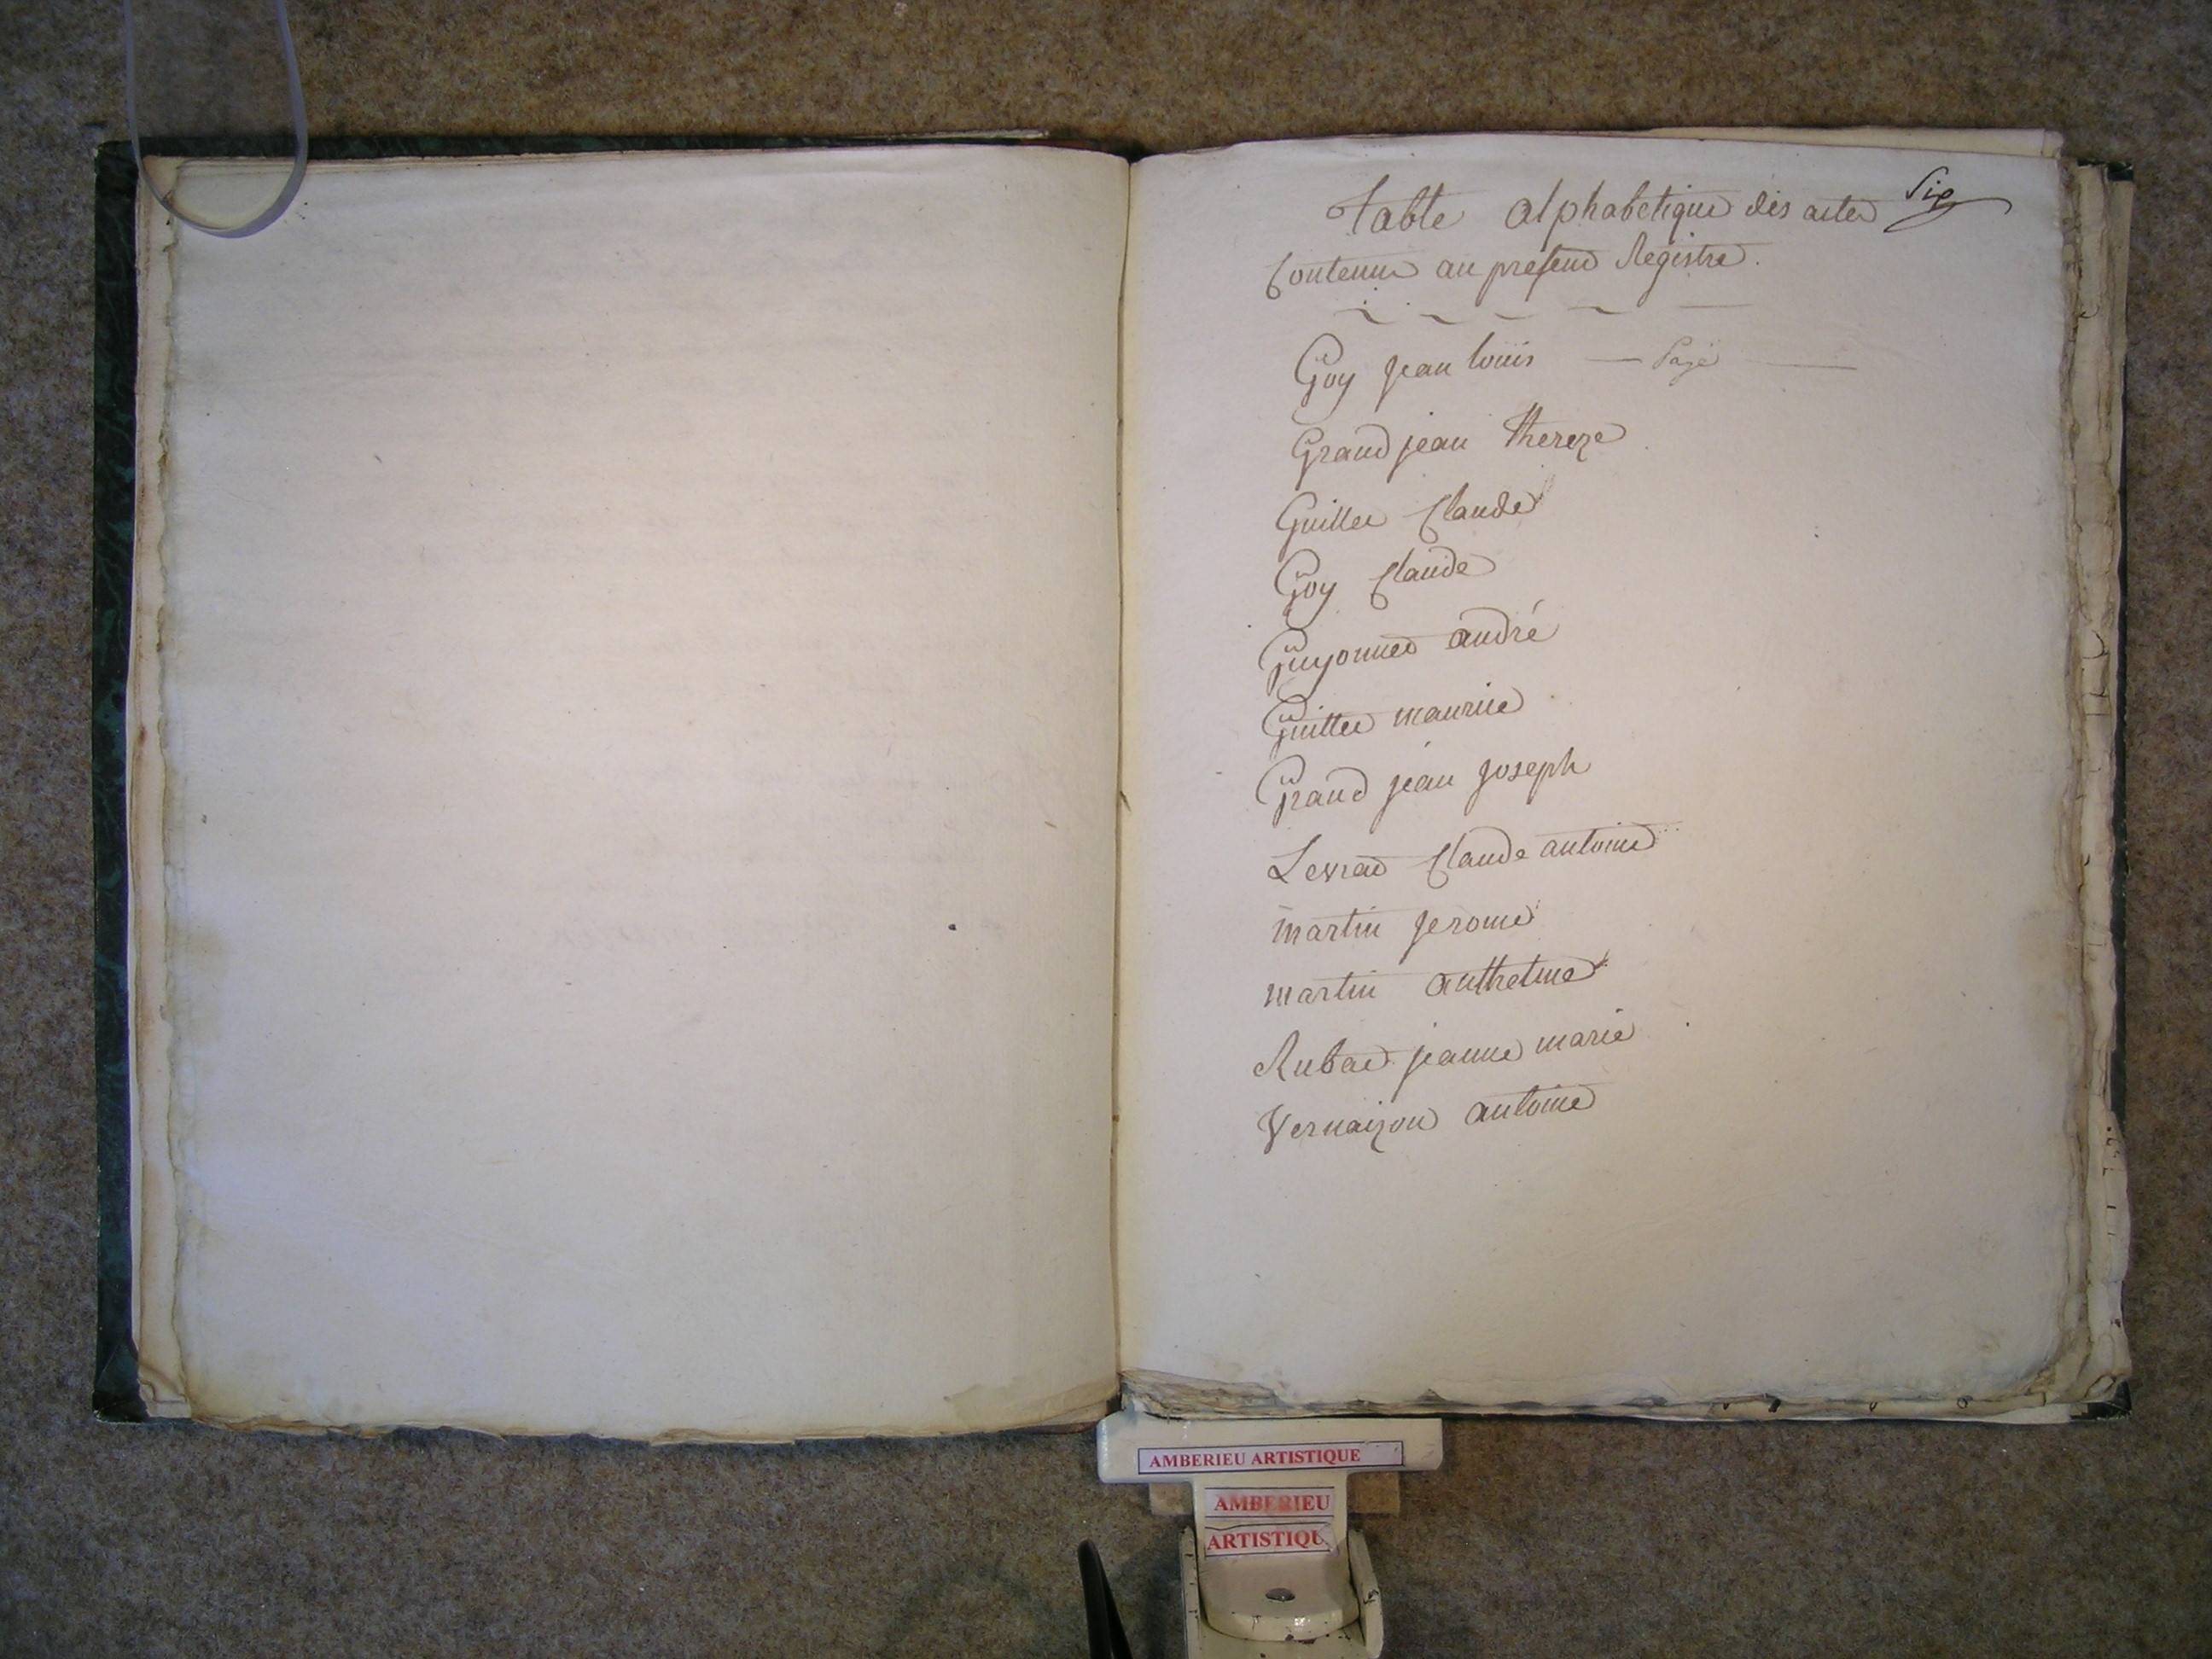 Table alphabetique des actes
Contenus au present Registre.
Goy jean louis — Page —
Grand jean thereze
Guillet Claude
Goy Claude
Guyonnet andré
Guillet maurice
Grand jean joseph
Levrat Claude antoine
martin jerome
martin anthelme
Rubat jeanne marie
Vernaizon antoine
AMBERIEU ARTISTIQUE
AMBERIEU
ARTISTIQU